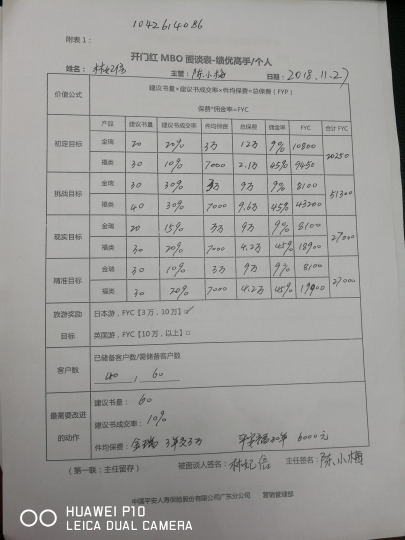 1042614086
附表1：
开门红 MBO 面谈表-绩优高手/个人
姓名： 主管：陈小梅 日期：2018.11.27
价值公式 建议书量×建议书成交率×件均保费=总保费（FYP）
保费*佣金率=FYC
产品 建议书量 建议书成交率 件均保费 总保费 佣金率 FYC 合计 FYC
初定目标 金瑞 20 20% 3万 12万 9% 10800 20250
福类 30 10% 7000 2.1万 45% 9450
挑战目标 金瑞 30 30% 9万 9% 8100 51300
福类 40 30% 7000 9.6万 45% 43200
现实目标 金瑞 20 15% 3万 9万 9% 8100 27000
福类 30 20% 7000 4.2万 45% 18900
精准目标 金瑞 30 10% 3万 9万 9% 8100 27000
福类 30 20% 7000 4.2万 45% 18900
旅游奖励 日本游，FYC【3万，10万】☑
目标 英国游，FYC【10万，以上】□
客户数 已储备客户数/需储备客户数
60
最需要改进 建议书量： 60
的动作 建议书成交率： 10%
件均保费： 金瑞 3年交3万 平安福20年 6000元
（第一联：主任留存） 被面谈人签名： 主任签名：陈小梅
中国平安人寿保险股份有限公司广东分公司 营销管理部
HUAWEI P10
LEICA DUAL CAMERA